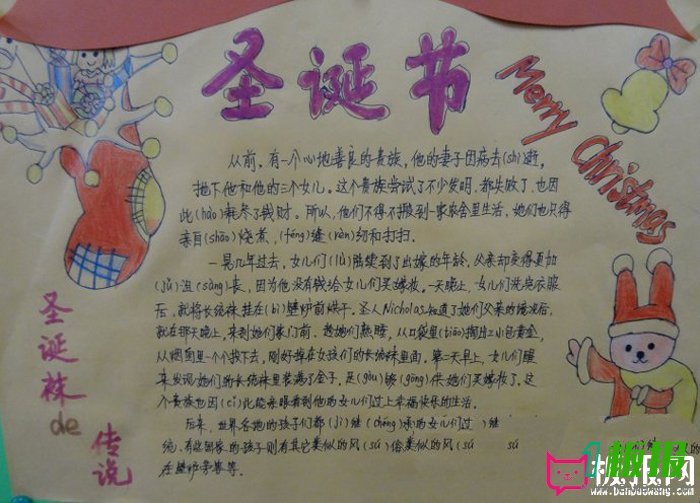 圣诞节
Merry Christmas
从前,有一个心地善良的贵族,他的妻子因病去(shì)逝,
抛下他和他的三个女儿。这个贵族尝试了不少发明,都失败了,也因
此(hào)耗尽了钱财。所以,他们不得不搬到一家农舍里生活,她们也只得
亲自(shāo)烧煮,(féng)缝(rèn)纫和打扫。
一晃几年过去,女儿们(lù)陆续到了出嫁的年龄,父亲却变得更加
(jǔ)沮(sàng)丧,因为他没有钱给女儿们买嫁妆。一天晚上,女儿们洗完衣服
后,就将长统袜挂在(bì)壁炉前烘干。圣人Nicholas知道了她们父亲的境况后,
就在那天晚上,来到她们家门前,趁她们熟睡,从口袋里(tāo)掏出三小包黄金,
从烟囱里一个个投下去,刚好掉在女孩们的长统袜里面。第二天早上,女儿们醒
来发现她们的长统袜里装满了金子,足(gòu)够(gōng)供她们买嫁妆了。这
个贵族也因(cǐ)此能亲眼看到他的女儿们过上幸福快乐的生活。
后来,世界各地的孩子们都(jì)继(chéng)承
统,有些国家的孩子则有其它类似的风(sú)俗类似的风(sú
在壁炉旁等等。
圣诞袜
de
传说
板报网
www.banbaowang.com